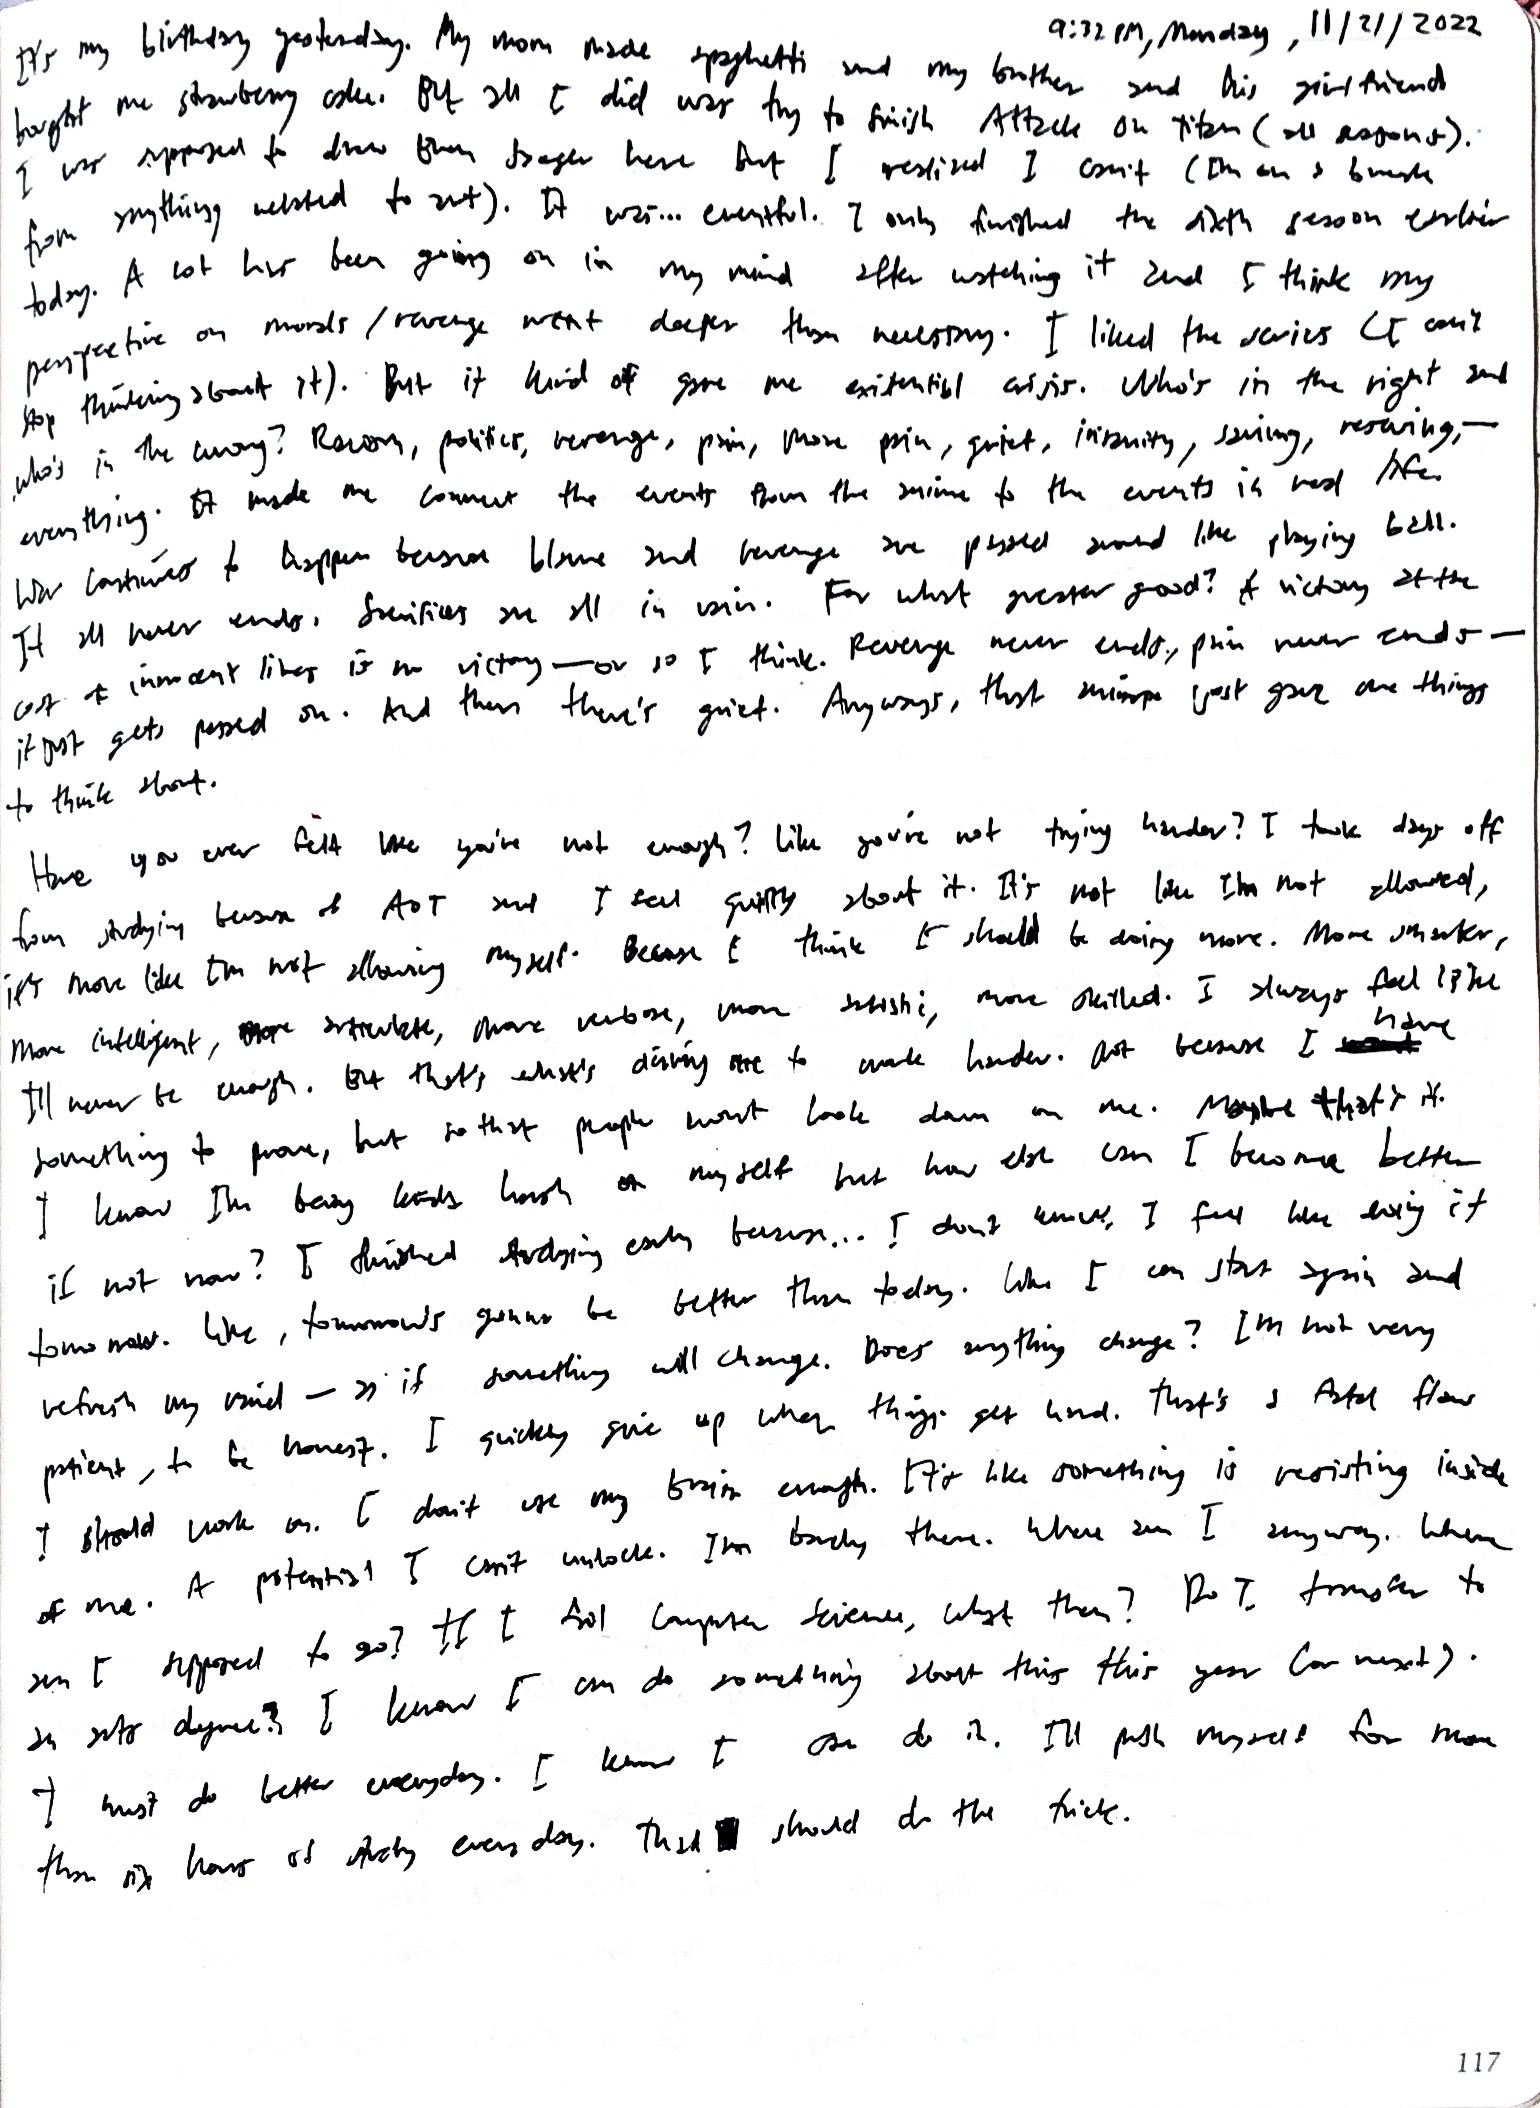 9:32 PM, Monday, 11/21/2022
It's my birthday yesterday. My mom made spaghetti and my brother and his girlfriend
bought me strawberry cake. But all I did was try to finish Attack on Titan (all seasons).
I was supposed to draw Eren Jaeger here but I realized I can't (I'm on a break
from anything related to art). It was... eventful. I only finished the sixth season earlier
today. A lot has been going on in my mind after watching it and I think my
perspective on morals/revenge went deeper than necessary. I liked the series (I can't
stop thinking about it). But it kind of gave me existential crisis. Who's in the right and
who's in the wrong? Racism, politics, revenge, pain, more pain, grief, insanity, saving, rescuing,—
everything. It made me connect the events from the anime to the events in real life.
War continues to happen because blame and revenge are passed around like playing ball.
It all never ends. Sacrifices are all in vain. For what greater good? A victory at the
cost of innocent lives is no victory—or so I think. Revenge never ends, pain never ends—
it just gets passed on. And then there's grief. Anyways, that anime just gave me things
to think about.
Have you ever felt like you're not enough? Like you're not trying harder? I took days off
from studying because of AOT and I feel guilty about it. It's not like I'm not allowed,
it's more like I'm not allowing myself. Because I think I should be doing more. More smarter,
more intelligent, more articulate, more verbose, more artistic, more skilled. I always feel like
I'll never be enough. But that's what's driving me to work harder. Not because I have
something to prove, but so that people won't look down on me. Maybe that's it.
I know I'm being kinda harsh on myself but how else can I become better
if not now? I finished studying early because... I don't know, I feel like doing it
tomorrow. Like, tomorrow's gonna be better than today. Like I can start again and
refresh my mind — as if something will change. Does anything change? I'm not very
patient, to be honest. I quickly give up when things get hard. That's a fatal flaw
I should work on. I don't use my brain enough. It's like something is resisting inside
of me. A potential I can't unlock. I'm barely there. Where am I anyway. Where
am I supposed to go? If I fail Computer Science, what then? Do I transfer to
an arts degree? I know I can do something about this this year (or next).
I must do better everyday. I know I can do it. I'll push myself for more
than six hours of study everyday. That should do the trick.
117